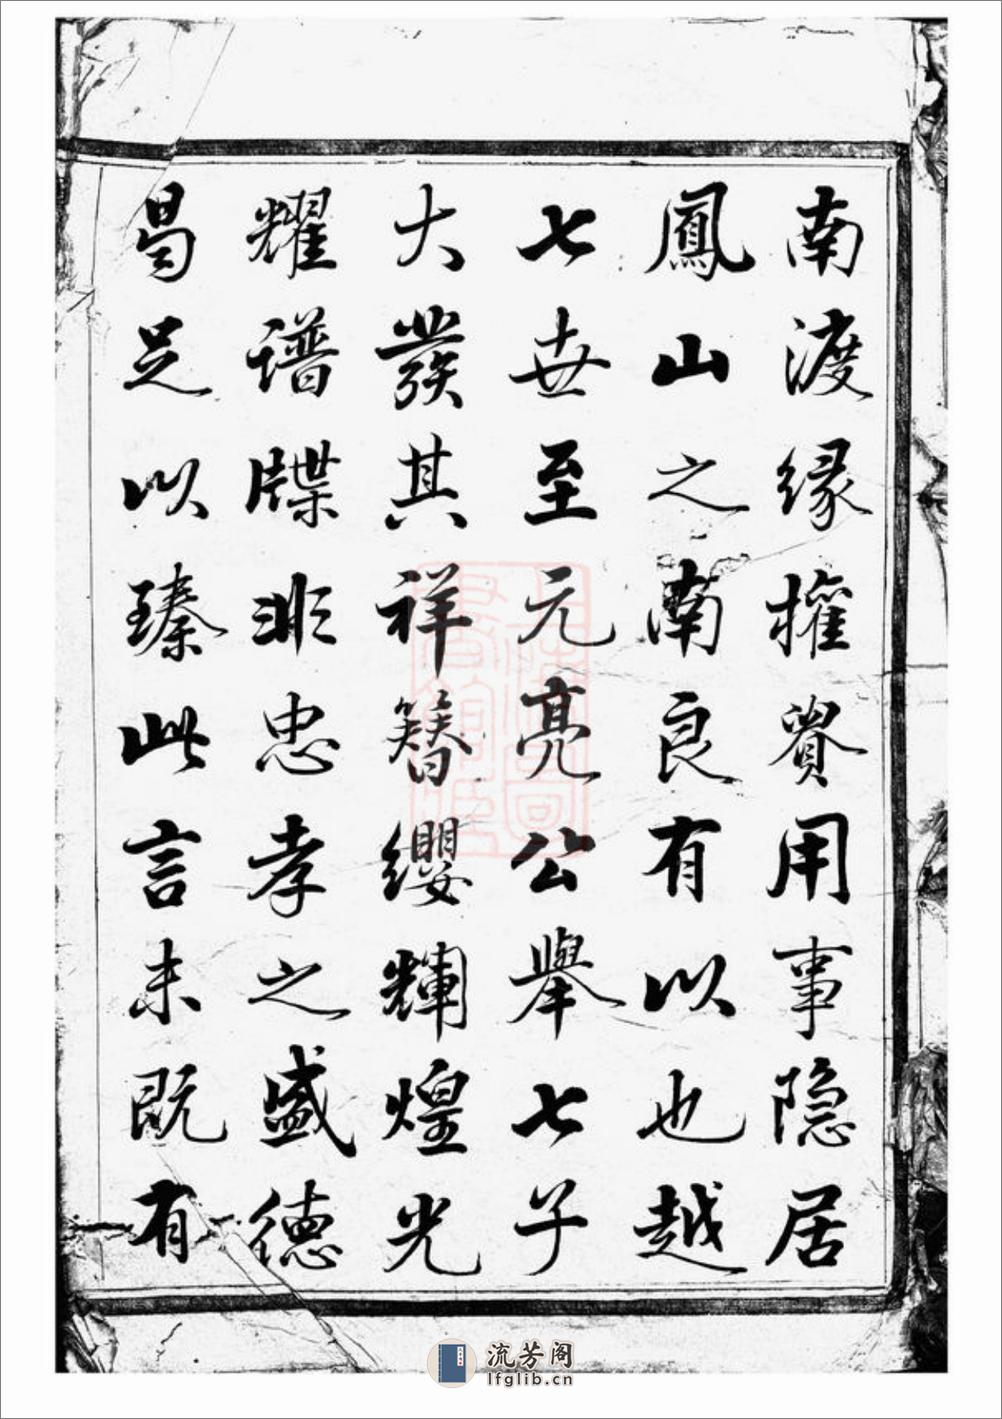 南渡缘擁赀用事隐居
鳳山之南良有以也越
七世至元亮公舉七子
大發其祥簪纓輝煌光
耀谱牒非忠孝之盛德
曷足以臻此言未既有
流芳阁
lfglib.cn